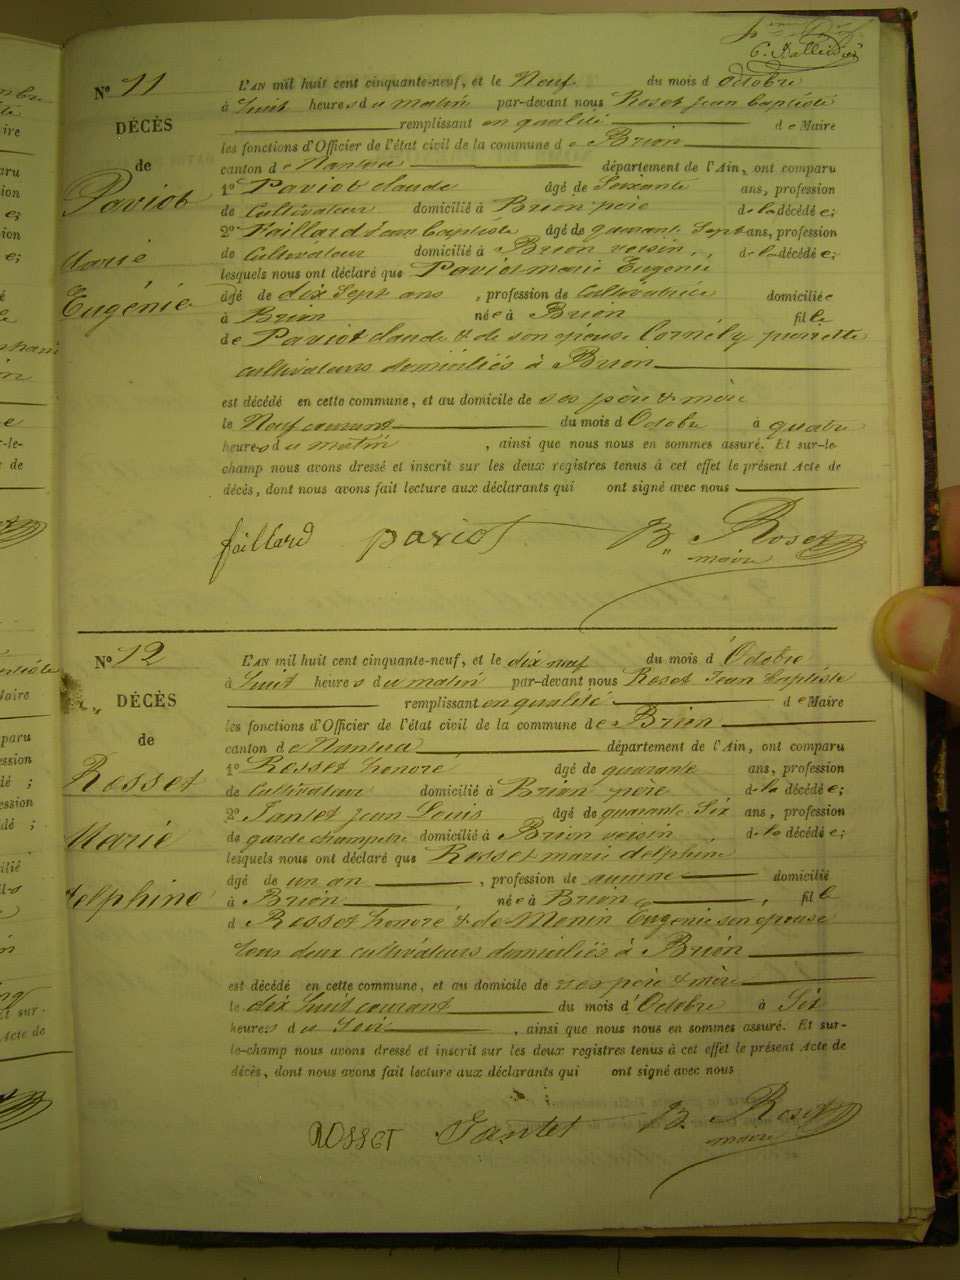 C. Ballivet
Nº 11
L'AN mil huit cent cinquante-neuf, et le Neuf du mois d octobre
à huit heures du matin par-devant nous Roset jean baptiste
DÉCÈS
remplissant en qualité de Maire
les fonctions d'Officier de l'état civil de la commune de Brion
de
canton de Nantua département de l'Ain, ont comparu
Paviot
1º Paviot claude âgé de Soixante ans, profession
de Cultivateur domicilié à Brion père de la décédée;
2º Faillard jean baptiste âgé de quarante Sept ans, profession
de Cultivateur domicilié à Brion voisin de la décédée;
Marie
lesquels nous ont déclaré que Paviot marie Eugénie
Eugénie
âgé de dix Sept ans, profession de Cultivatrice domiciliée
à Brion née à Brion fille
de Paviot claude & de son épouse Cornély pierrette
cultivateurs domiciliés à Brion
est décédé en cette commune, et au domicile de ses père & mère
le Neuf courant du mois d Octobre à quatre
heures du matin, ainsi que nous nous en sommes assuré. Et sur-le-
champ nous avons dressé et inscrit sur les deux registres tenus à cet effet le présent Acte de
décès, dont nous avons fait lecture aux déclarants qui ont signé avec nous
faillard paviot B. Roset
maire
Nº 12
L'AN mil huit cent cinquante-neuf, et le dix neuf du mois d'Octobre
à huit heures du matin par-devant nous Roset Jean baptiste
DÉCÈS
remplissant en qualité de Maire
les fonctions d'Officier de l'état civil de la commune de Brion
de
canton de Nantua département de l'Ain, ont comparu
Rosset
1º Rosset honoré âgé de quarante ans, profession
de Cultivateur domicilié à Brion père de la décédée;
2º Tantet jean Louis âgé de quarante Six ans, profession
Marie
de garde champetre domicilié à Brion voisin de la décédée;
lesquels nous ont déclaré que Rosset marie delphine
delphine
âgé de un an, profession de aucune domicilié
à Brion née à Brion, fille
d Rosset honoré & de Monin Eugénie son epouse
tous deux cultivateurs domiciliés à Brion
est décédé en cette commune, et au domicile de ses père & mère
le dix huit courant du mois d'Octobre à Six
heures du Soir, ainsi que nous nous en sommes assuré. Et sur-
le-champ nous avons dressé et inscrit sur les deux registres tenus à cet effet le présent Acte de
décès, dont nous avons fait lecture aux déclarants qui ont signé avec nous
ROSSET Tantet B. Roset
maire